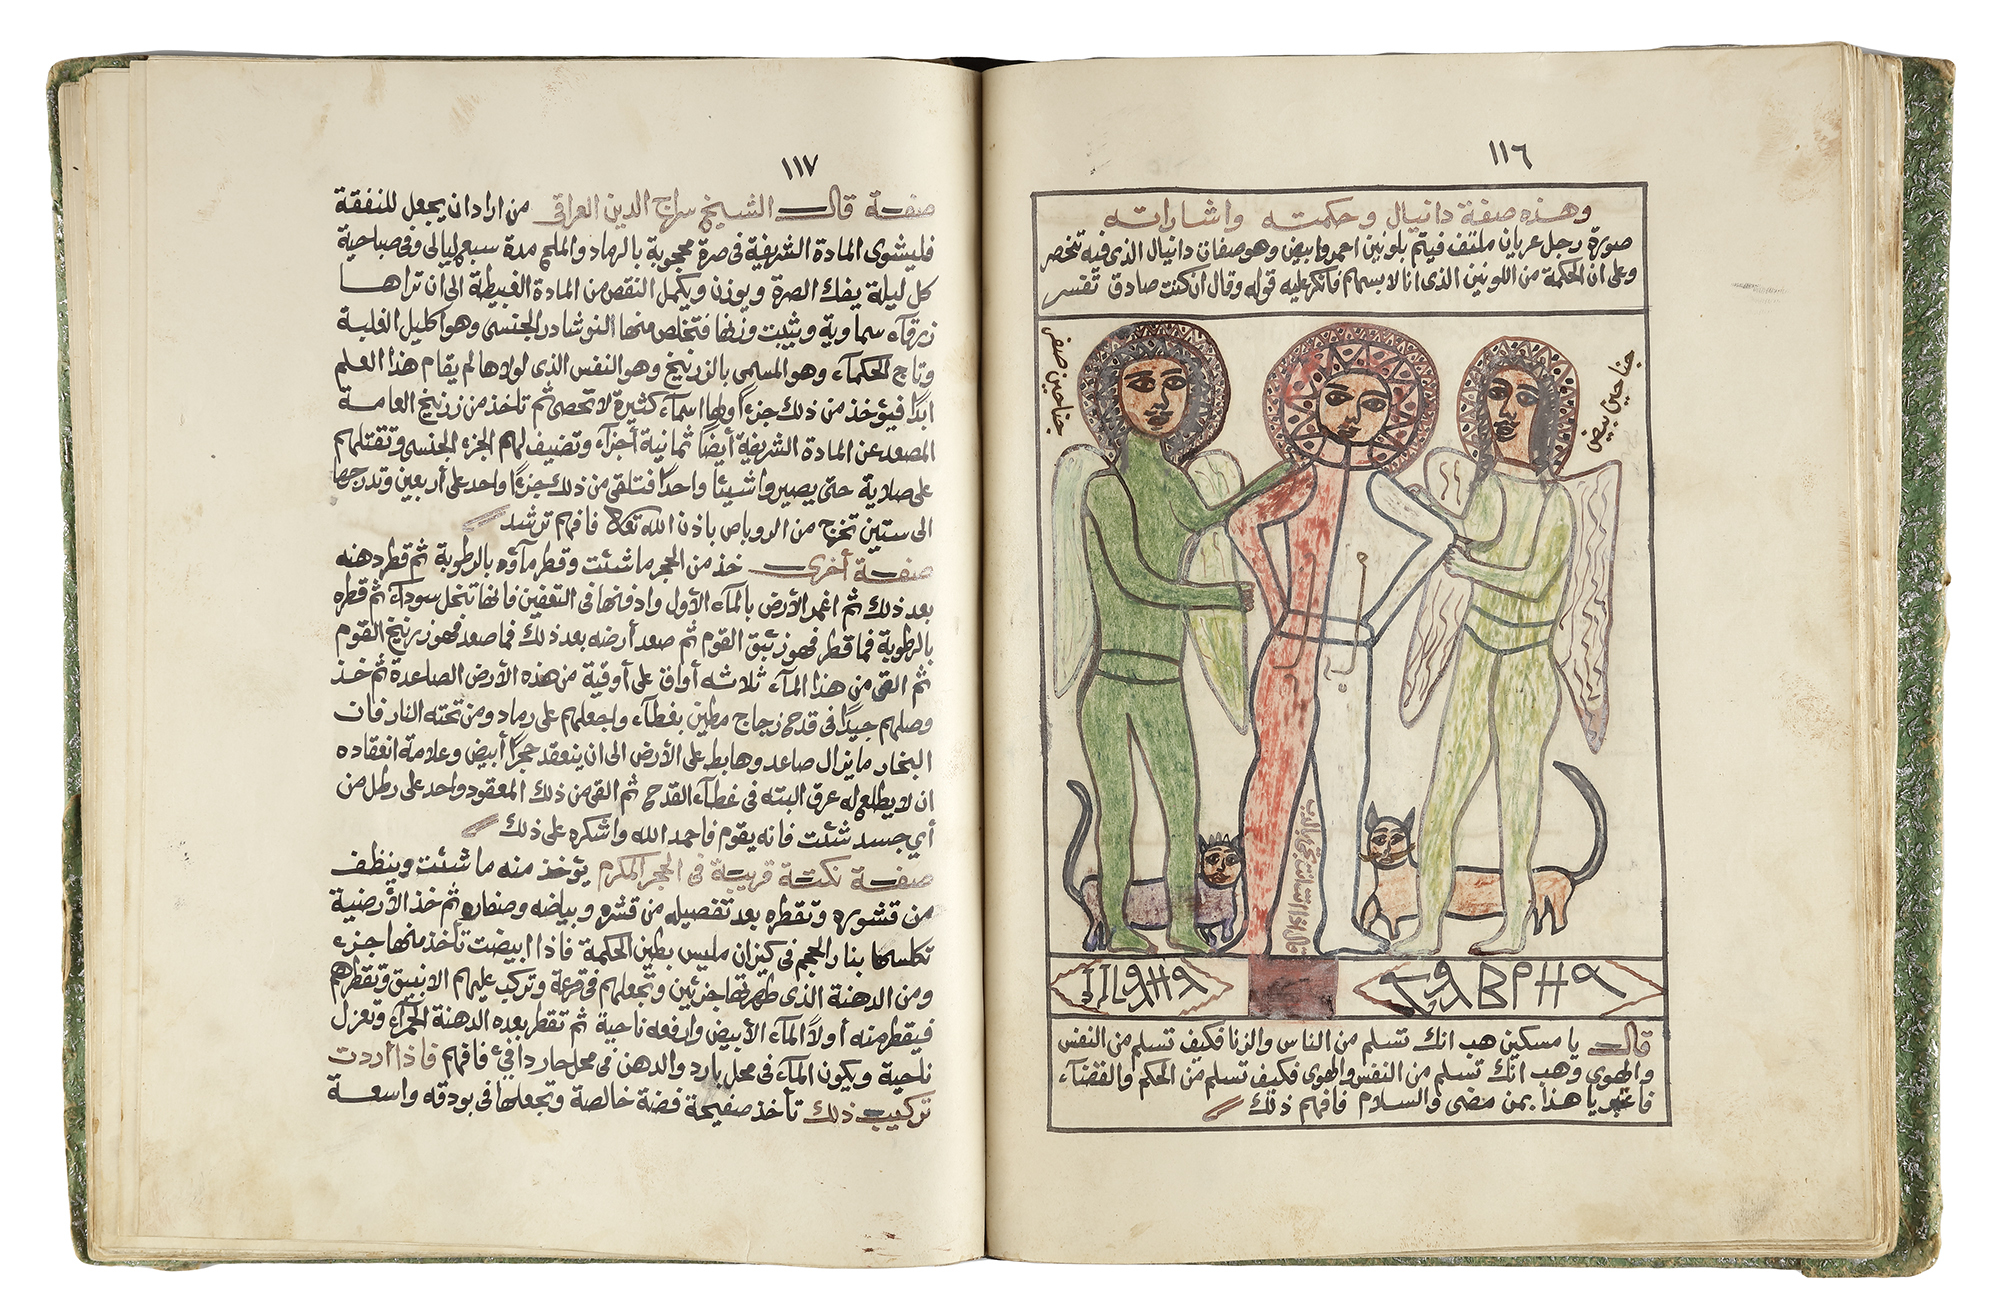 ١١٦
وهذه صفة دانيال وحكمته واشاراته
صورة رجل عريان ملتف فيتم بلونين احمر وابيض وهو صفات دانيال الذى فيه تنحصر
وعلى ان الحكمة من اللونين الذى انا لابسهام فانكر عليه قوله وقال ان كنت صادق تفسر
جناحين صفر
جناحين بيض
قال يا مسكين هب انك تسلم من الناس والزنا فكيف تسلم من النفس
والهوى وهب انك تسلم من النفس والهوى فكيف تسلم من الحكم والقضآء
فاعتبر يا هذا بمن مضى والسلام فافهم ذلك
١١٧
صفة قال الشيخ سراج الدين العراقى من اراد ان يجعل للنفقة
فليشوى المادة الشريفة فى صرة محجوبة بالرماد والملح مدة سبع ليالى وفى صباحية
كل ليلة يفك الصرة ويوزن ويكمل النقص من المادة الغبيطة الى ان تراها
زرقآء سماوية ويثبت وزنها فتخلص منها النوشادر الجنسى وهو اكليل الغلبة
وتاج الحكمآء وهو المسمى بالزرنيخ وهو النفس الذى لولاها لم يقام هذا العلم
ابدًا فيؤخذ من ذلك جزءًا ولها اسمآء كثيرة لا تحصى ثم تأخذ من زرنيخ العامة
المصعد عن المادة الشريفة أيضًا ثمانية أجزآء وتضيف لهم الجزء الجنسى وتقتلهم
على صلاية حتى يصيروا شيئًا واحدًا فتلقى من ذلك جزءًا واحد على أربعين وتدرجها
الى ستين تخرج من الروباص باذن الله تعالى فافهم ترشد
صفة أخرى خذ من الحجر ما شئت وقطر مآؤه بالرطوبة ثم قطر دهنه
بعد ذلك ثم اغمر الأرض بالمآء الأول وادفنها فى التعفين فانها تنحل سودآء ثم قطره
بالرطوبة فما قطر فهو زئبق القوم ثم صعد أرضه بعد ذلك فما صعد فهو زرنيخ القوم
ثم القى من هذا المآء ثلاثه أواق على أوقية من هذه الأرض الصاعدة ثم خذ
وصلهم جيدًا فى قدح زجاج مطين بغطآء واجعلهم على رماد ومن تحته النار فان
البخار ما يزال صاعد وهابط على الأرض الى ان ينعقد حجرًا أبيض وعلامة انعقاده
ان لا يطلع له عرق البته فى غطآء القدح ثم القى من ذلك المعقود واحد على رطل من
أي جسد شئت فانه يقوم فاحمد الله واشكره على ذلك
صفة نكتة قريبة فى الحجر المكرم يؤخذ منه ما شئت وينظف
من قشوره وتقطره بعد تفصيله من قشره وبياضه وصفاره ثم خذ الأرضية
تكلسها بنار الحجم فى كيزان مليس بطين الحكمة فاذا ابيضت تأخذ منها جزء
ومن الدهنة الذى طهرتها جزئين وتجعلهم فى قرعة وتركب عليهم الانبيق وتقطرهم
فيقطر منه أولاً المآء الأبيض وارفعه ناحية ثم تقطر بعده الدهنة الحمرآء وتعزل
ناحية ويكون المآء فى محل بارد والدهن فى محل حار دافئ فافهم فاذا أردت
تركيب ذلك تأخذ صفيحة فضة خالصة وتجعلها فى بودقه واسعة